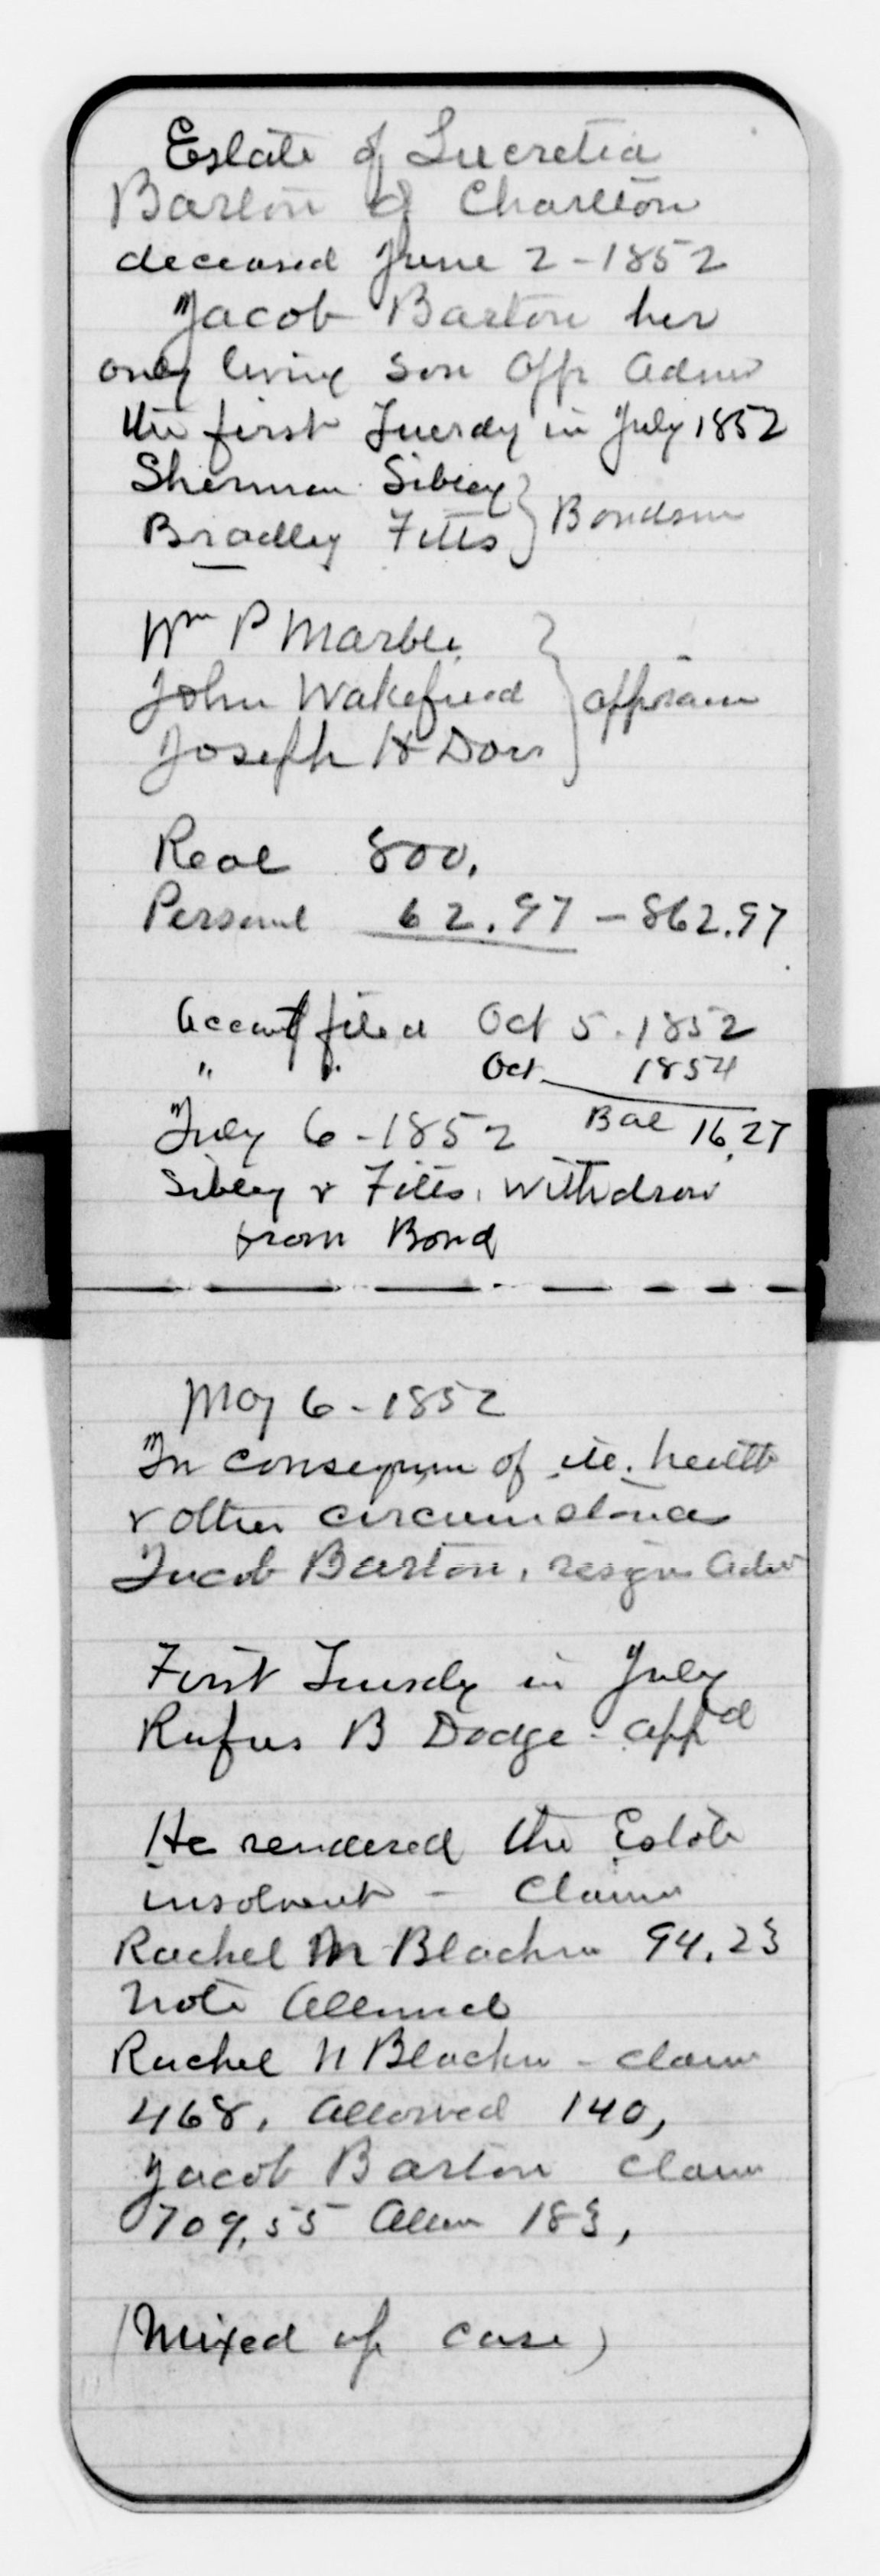 Estate of Lucretia
Barton of Charlton
deceased June 2 - 1852
Jacob Barton her
only living son app Admr
the first Tuesdy in July 1852
Sherman Sibley
Bradley Fitts } Bondsm
Wm P Marble
John Wakefield } appraisers
Joseph H Dorr
Real 800.
Personal 62.97 - 862.97
Account filed Oct 5. 1852
" " Oct 1854
Bal 16.27
July 6 - 1852
Sibley & Fitts, withdraw
from Bond
May 6 - 1852
In consequence of ill health
& other circumstances
Jacob Barton, resigns Admr
First Tuesdy in July
Rufus B Dodge - appd
He rendered the Estate
insolvent - Claims
Rachel M Blackm 94.23
Note Allowed
Rachel M Blackm - claim
468. Allowed 140,
Jacob Barton claim
709.55 Allow 183,
(Mixed up case)